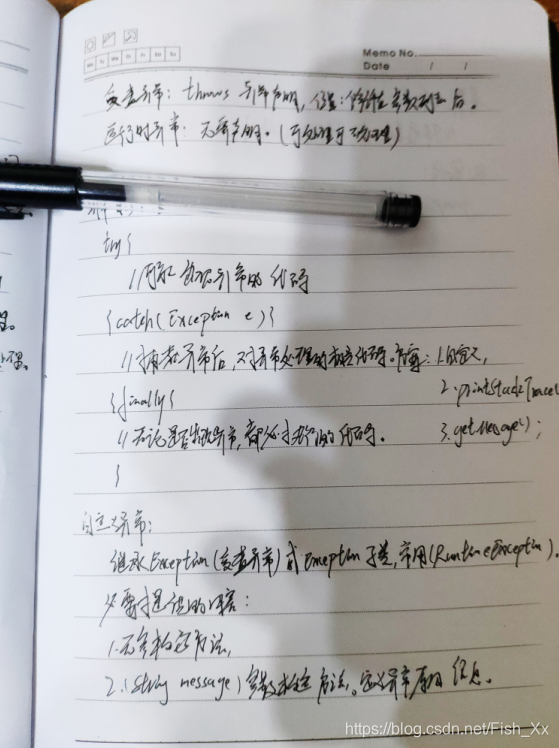 Memo No.
Date / /
Mo Tu We Th Fr Sa Su
受查异常: throws 异常声明, 位置: 修饰在参数列表后。
运行时异常: 无需声明。(可处理可不处理)
try{
//可能出现异常的代码
}catch(Exception e){
//捕获异常后,对异常处理的相关代码。内容: 1.自定义,
2.printStackTrace(
}finally{
//无论是否出现异常,都必须执行的代码。
3.getMessage();
}
自定义异常:
继承Exception(受查异常)或Exception子类,常用(RuntimeException).
必需提供的内容:
1.无参构造方法,
2.(String message)参数构造方法。定义异常原因信息。
https://blog.csdn.net/Fish_Xx